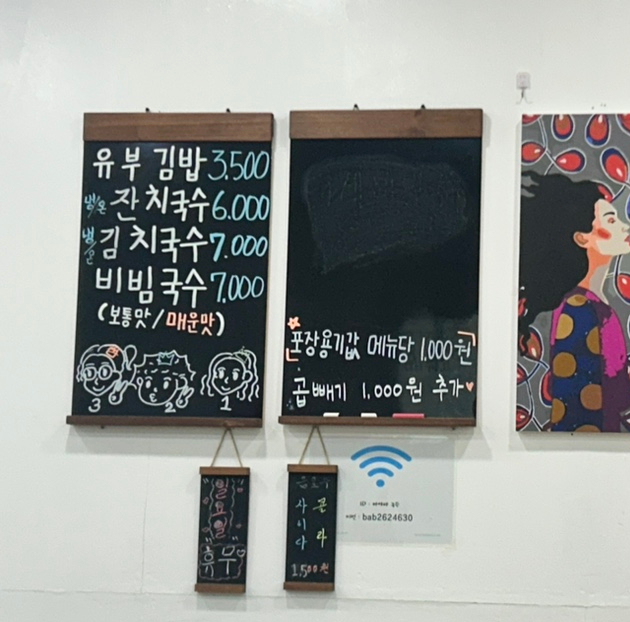 유부김밥 3.500
냉/온 잔치국수 6.000
냉/온 김치국수 7.000
비빔국수 7.000
(보통맛/매운맛)
3 2 1
포장용기값 메뉴당 1.000원
곱빼기 1.000원 추가
"일요일"
휴무
음료수
콜라
사이다
1,500원
bab2624630